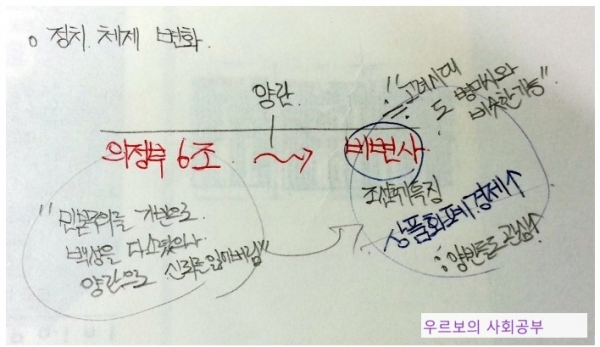 o 정치 체제 변화
양란
의정부 6조 → 비변사
"고려시대
도 병마사와
비슷한 기능"
조선후기 특징
상품화폐 경제↑
∴양반들도 관심↑
"민본주의를 기반으로
백성을 다스렸으나
양란으로 신뢰를 잃어버림"
우르보의 사회공부